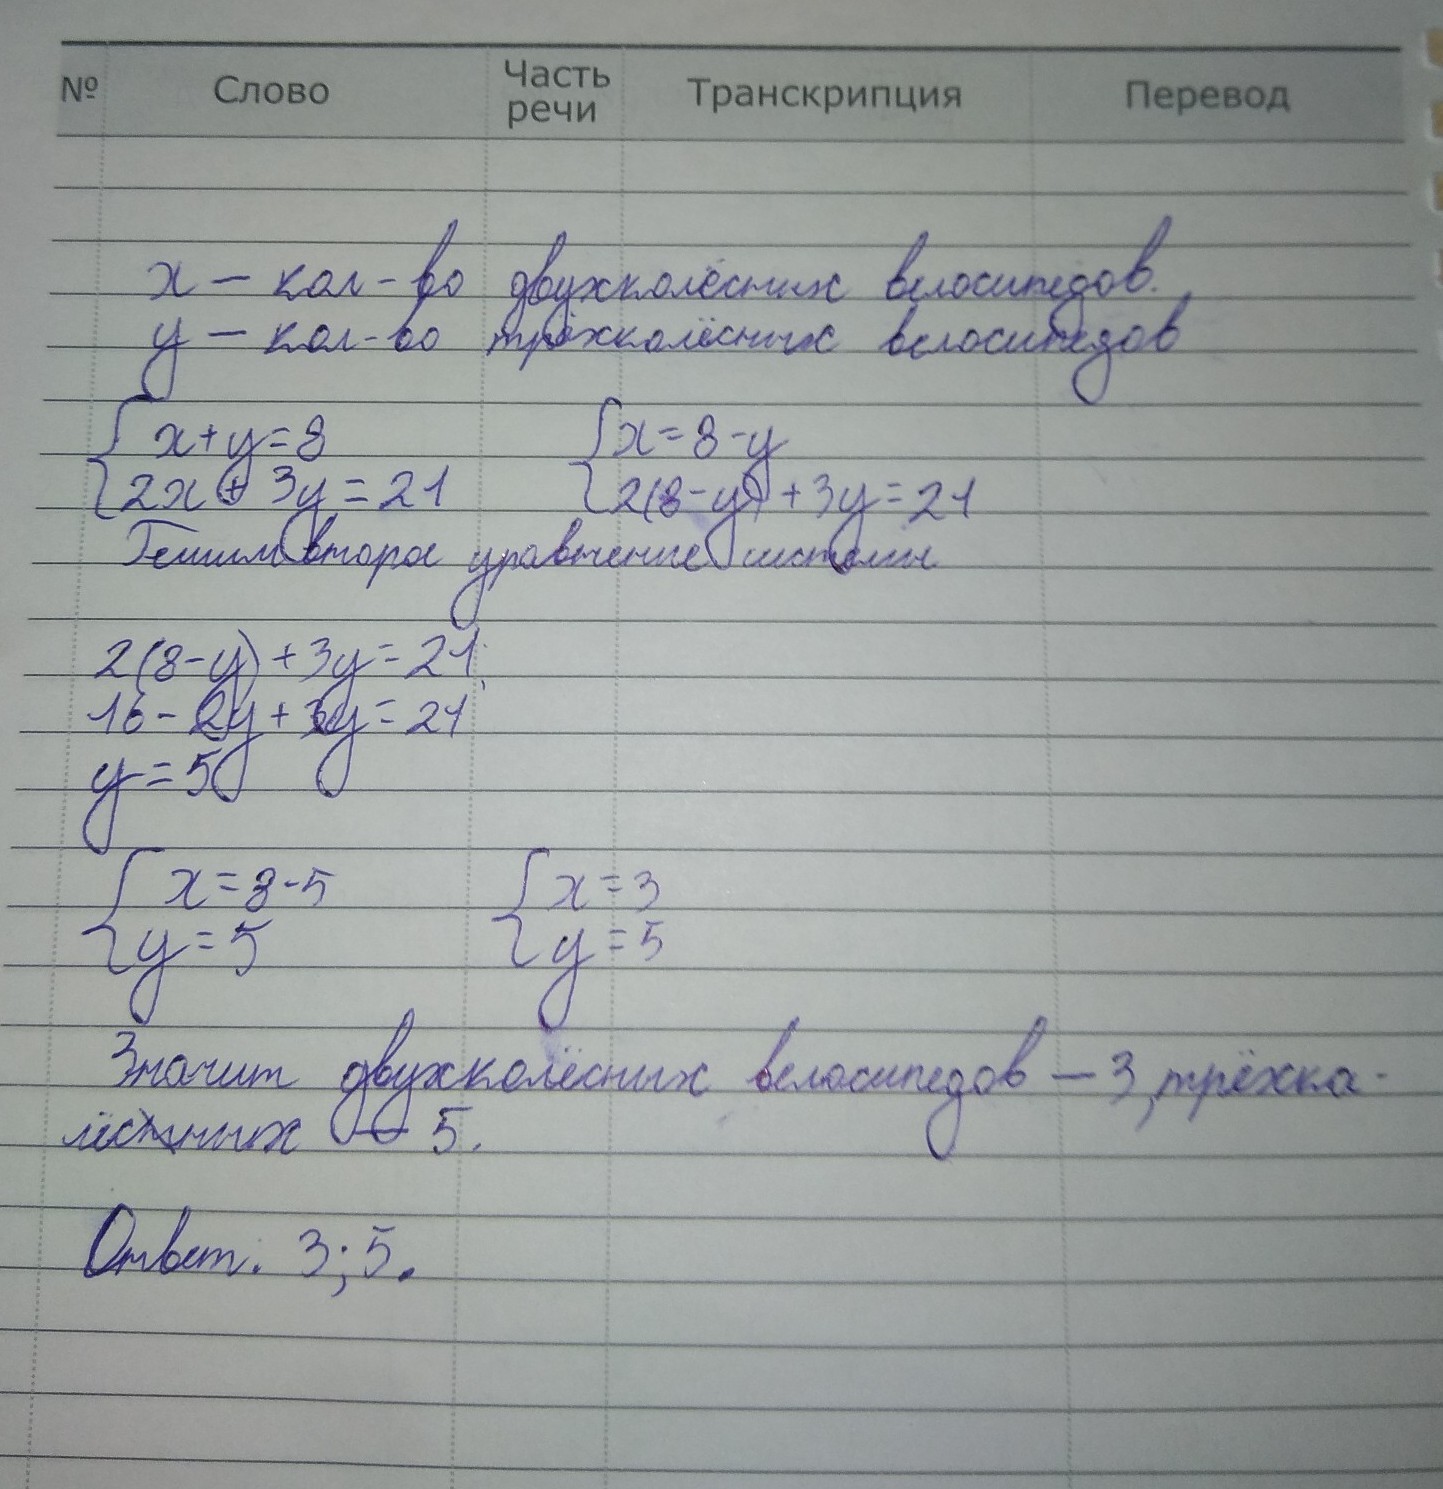 № Слово Часть речи Транскрипция Перевод
x – кол-во двухколёсных велосипедов.
y – кол-во трёхколёсных велосипедов
{ x+y=8 { x=8-y
{ 2x + 3y = 21 { 2(8-y) + 3y = 21
Решим второе уравнение системы
2(8-y) + 3y = 21;
16 - 2y + 3y = 21
y = 5
{ x = 8-5 { x = 3
{ y = 5 { y = 5
Значит двухколёсных велосипедов – 3, трёхко-
лёсных – 5.
Ответ: 3; 5.